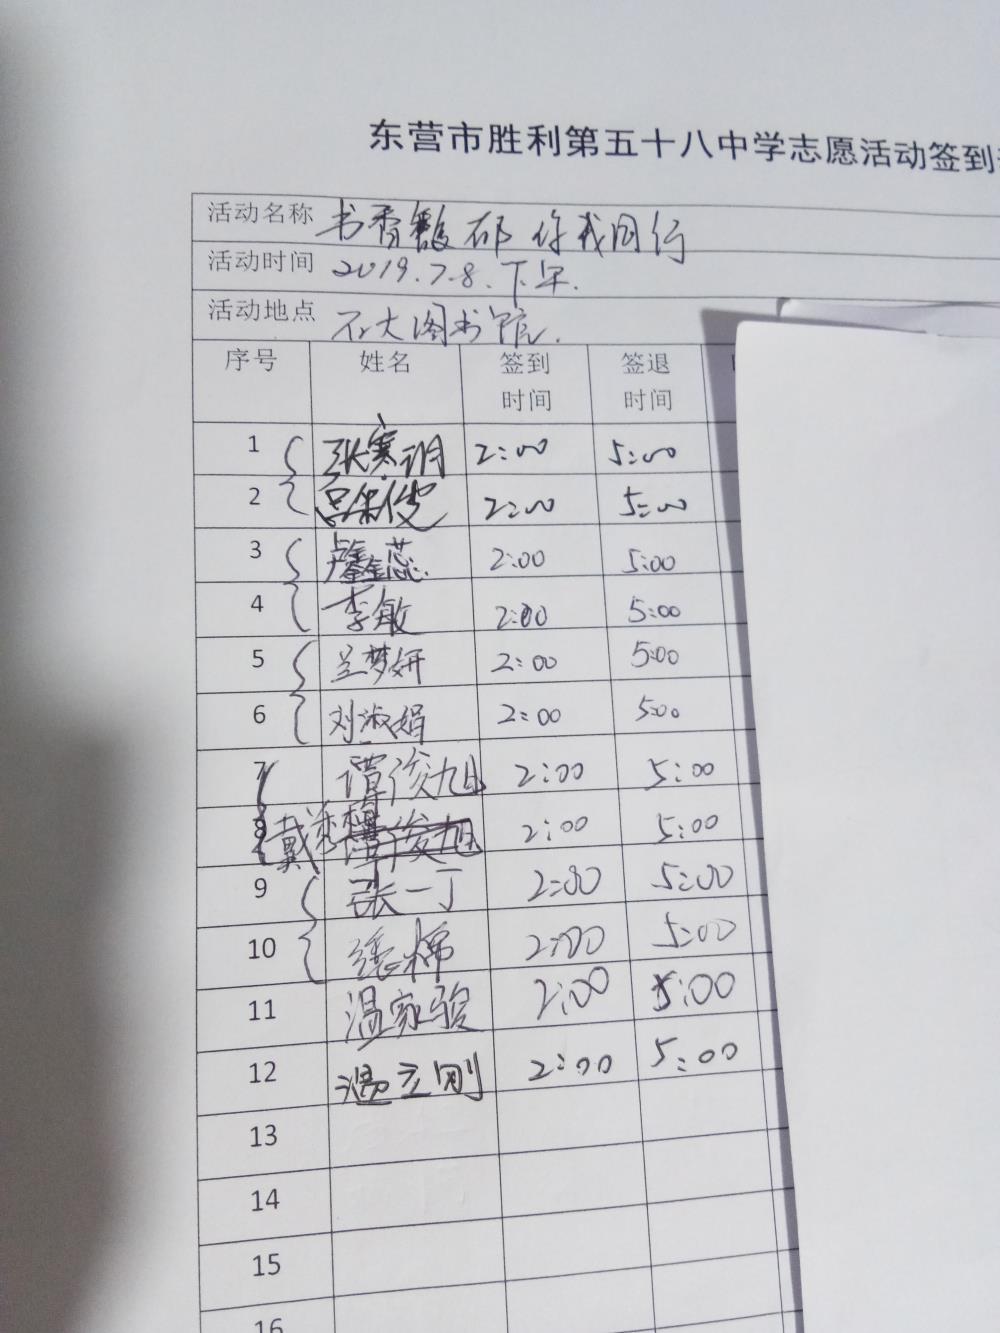 东营市胜利第五十八中学志愿活动签到
活动名称 书香馥郁 你我同行
活动时间 2019.7.8.下午.
活动地点 石大图书馆.
序号 姓名 签到时间 签退时间
1 张寒 2:00 5:00
2 吕 俊 2:00 5:00
3 鑫蕊 2:00 5:00
4 李敏 2:00 5:00
5 兰梦妍 2:00 5:00
6 刘淑娟 2:00 5:00
7 谭俊旭 2:00 5:00
8 戴秀 2:00 5:00
9 张一丁 2:00 5:00
10 2:00 5:00
11 温家骏 2:00 5:00
12 温立刚 2:00 5:00
13
14
15
16